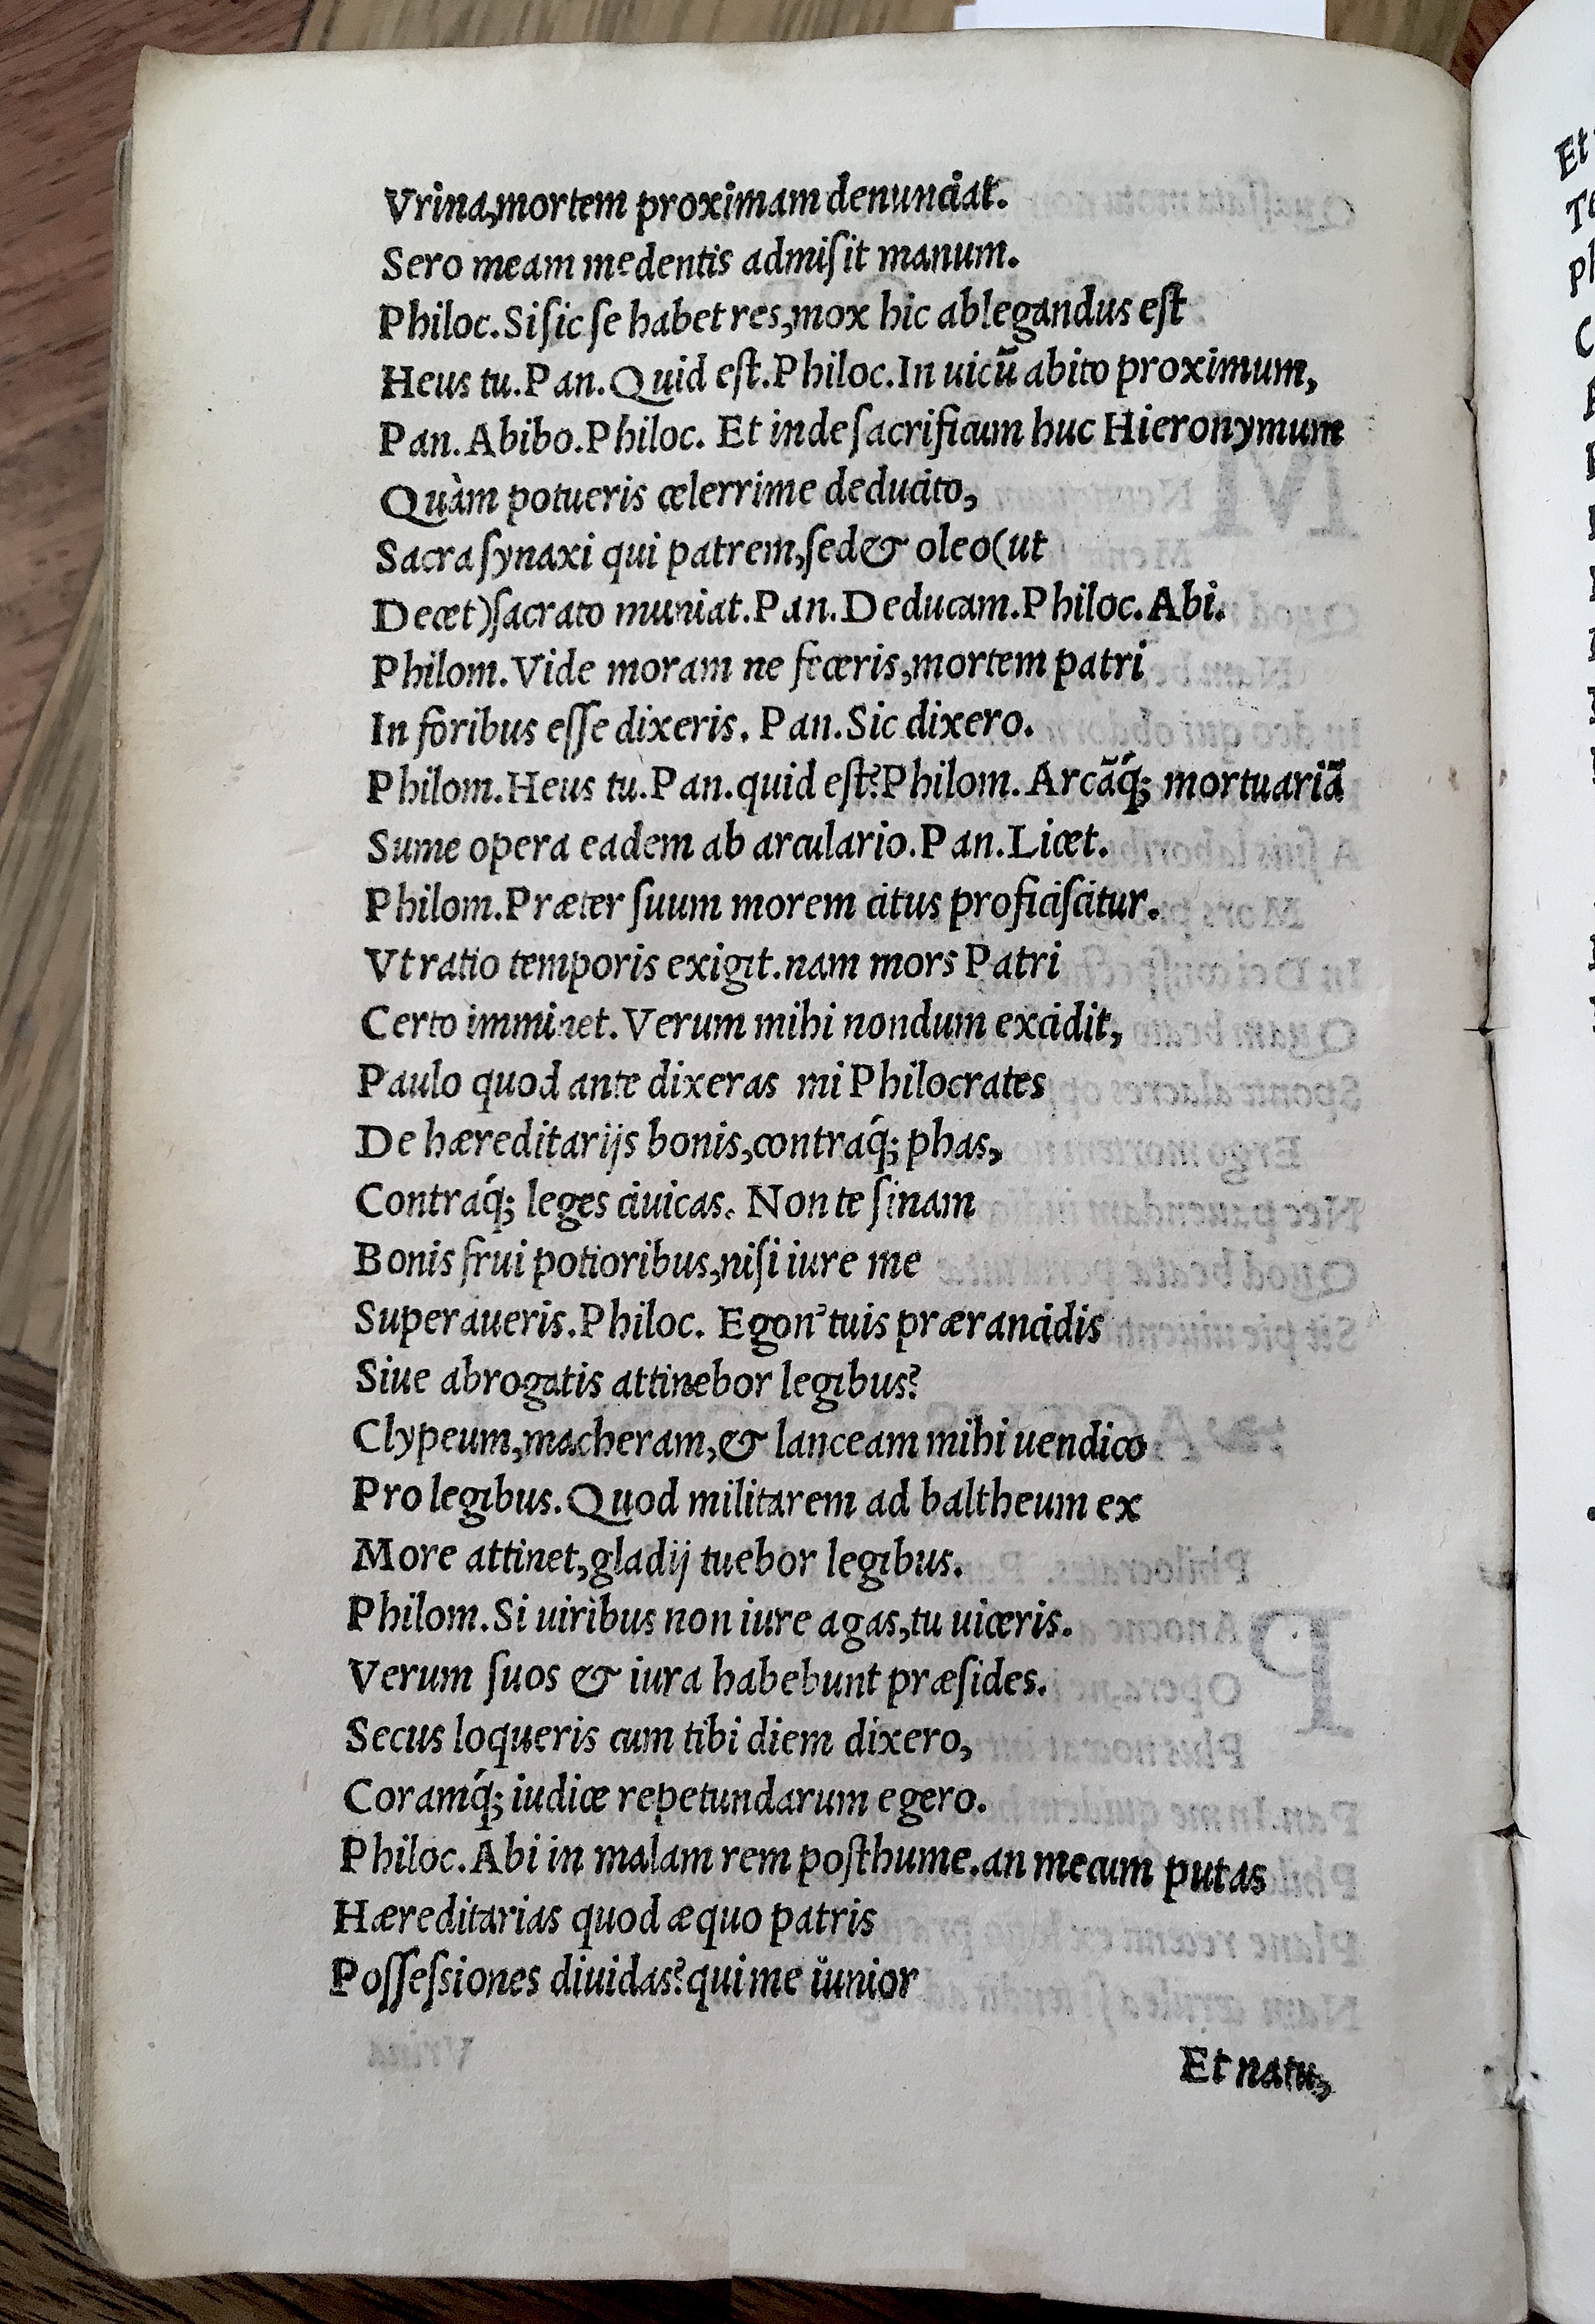 Vrina,mortem proximam denunciat.
Sero meam medentis admiſit manum.
Philoc.Si ſic ſe habet res,mox hic ablegandus eſt
Heus tu.Pan.Quid eſt.Philoc.In uicũ abito proximum,
Pan.Abibo.Philoc. Et inde ſacrificum huc Hieronymum
Quàm potueris celerrime deducito,
Sacra ſynaxi qui patrem,ſed & oleo(ut
Decet)ſacrato muniat.Pan.Deducam.Philoc.Abi.
Philom.Vide moram ne feceris,mortem patri
In foribus eſſe dixeris. Pan.Sic dixero.
Philom.Heus tu.Pan.quid eſt?Philom. Arcãq́; mortuariã
Sume opera eadem ab arculario.Pan.Licet.
Philom.Præter ſuum morem citus proficiſcitur.
Vt ratio temporis exigit.nam mors Patri
Certo imminet.Verum mihi nondum excidit,
Paulo quod ante dixeras mi Philocrates
De hæreditarijs bonis,contraq́; phas,
Contraq́; leges ciuicas. Non te ſinam
Bonis frui potioribus,niſi iure me
Superaueris.Philoc. Egon'tuis prærancidis
Siue abrogatis attinebor legibus?
Clypeum,macheram,& lanceam mihi uendico
Pro legibus.Quod militarem ad baltheum ex
More attinet,gladij tuebor legibus.
Philom.Si uiribus non iure agas,tu uiceris.
Verum ſuos & iura habebunt præſides.
Secus loqueris cum tibi diem dixero,
Coramq́; iudice repetundarum egero.
Philoc.Abi in malam rem poſthume.an mecum putas
Hæreditarias quod æquo patris
Poſſeſsiones diuidas?qui me iunior
Et natu,